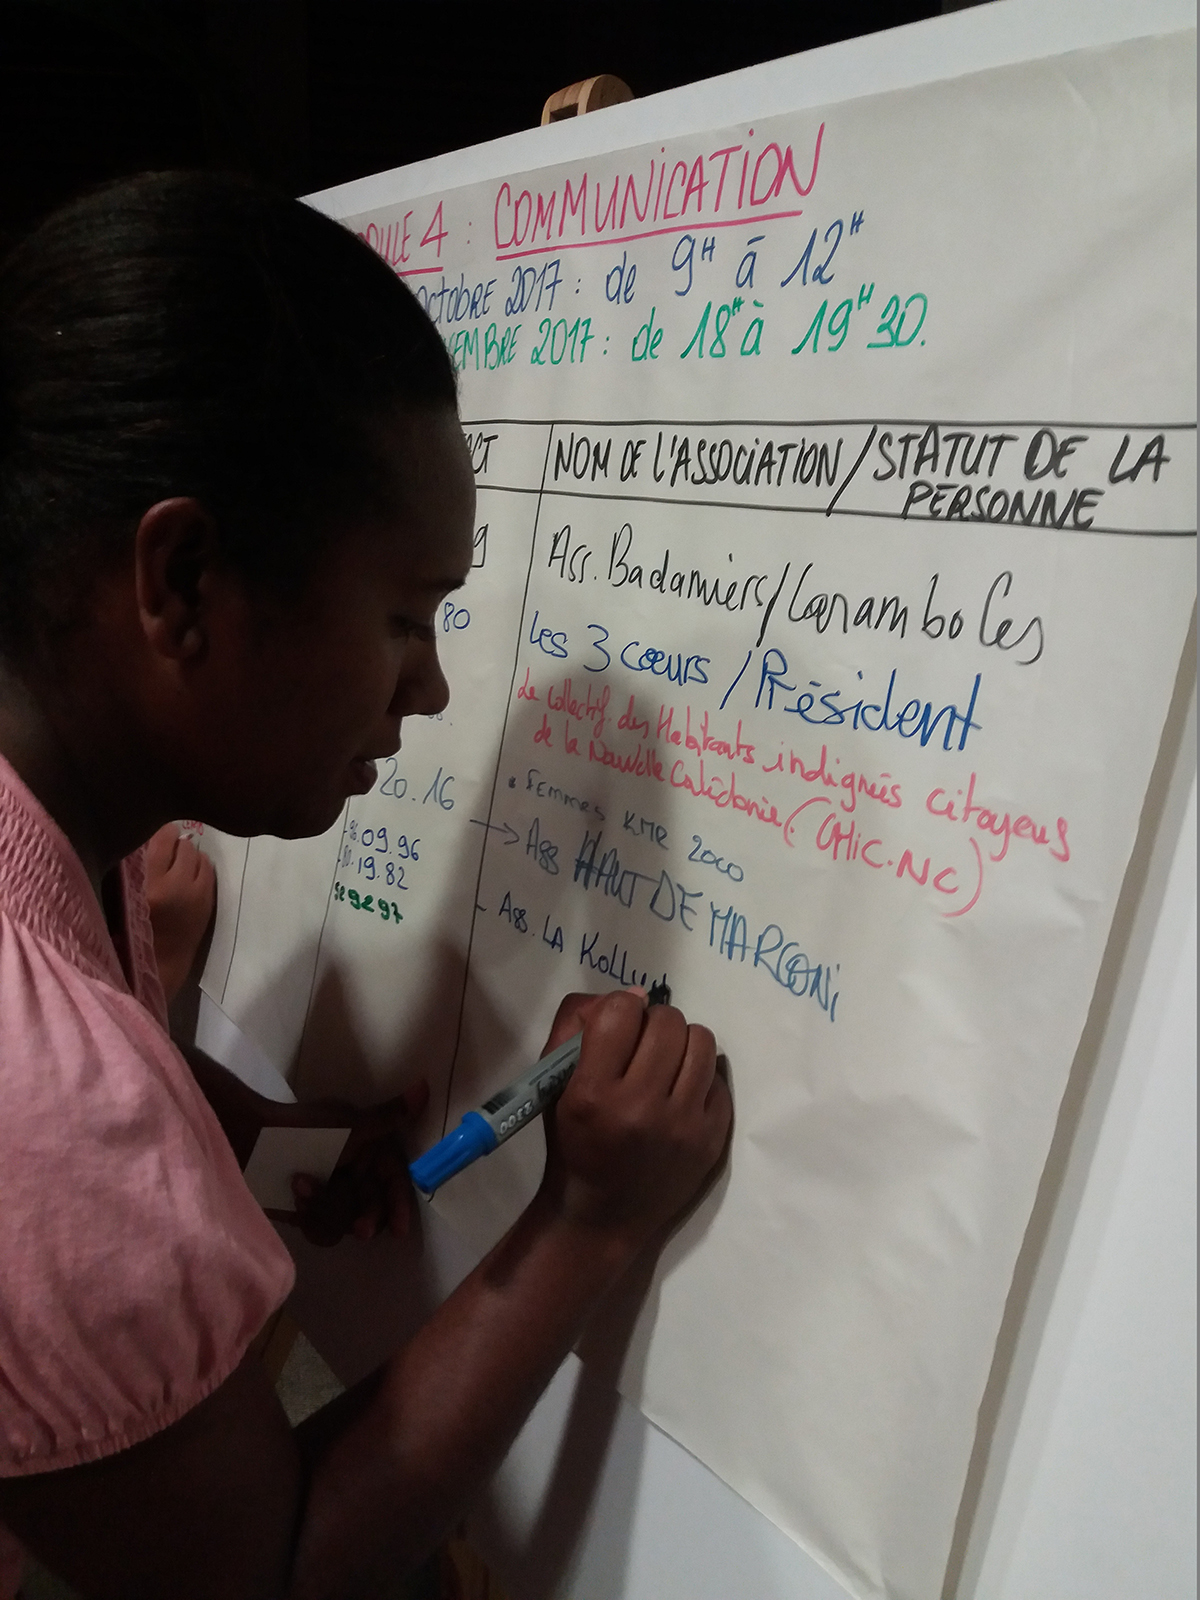 DULE 4 : COMMUNICATION
octobre 2017 : de 9H à 12H
EMBRE 2017 : de 18H à 19H30.
CT
NOM DE L'ASSOCIATION / STATUT DE LA
PERSONNE
9
Ass. Badamiers / Caramboles
80
Les 3 cœurs / Président
Le Collectif des Habitants indignés citoyens
de la Nouvelle Calédonie (CHIC.NC)
20.16
• Femmes KMR 2000
→ Ass HAUT DE MARCONi
09.96
19.82
97
- Ass. LA
2300